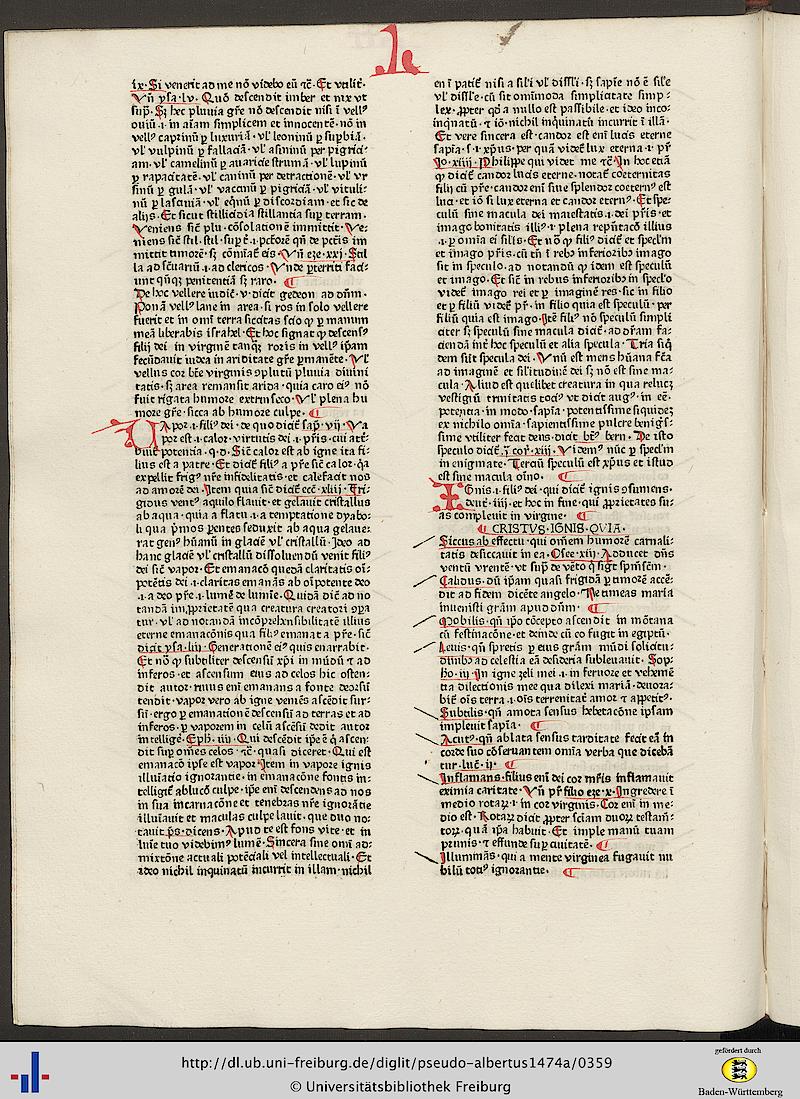 ix. Si venerit ad me nō videbo eū ⁊c̄. Et utilit̄.
Vn̄ ysa. lv. Quō descendit imber et nix vt
sup̄. Sꝫ hec pluuia gr̄e nō descendit nisi ī vellꝰ
ouiū .i. in aīam simplicem et innocentē. nō in
vellꝰ caprinū ꝑ luxuriā. vl̓ leoninū ꝑ suꝑbiā.
vl̓ vulpinū ꝑ fallaciā. vl̓ asininū per pigrici-
am. vl̓ camelinū ꝑ auaricie strumā. vl̓ lupinū
ꝑ rapacitatē. vl̓ caninū per detractionē. vl̓ vr
sinū ꝑ gulā. vl̓ vaccinū ꝑ pigriciā. vl̓ vituli-
nū ꝑ lasciuiā. vl̓ eqͥnū ꝑ discordiam. et sic de
alijs. Et sicut stillicidia stillantia suꝑ terram.
Veniens sic̄ plu. cōsolationē immittit. Ve-
niens sic̄ stil. stil. sup̄ t̄. i. pctōrē qn̄ de pctīs im
mittit timorē. sꝫ cōminat̄ eis. Vn̄ eze. xxj. Stil
la ad sc̄uariū .i. ad clericos. Vnde ꝑterriti faci-
unt qn̄qꝫ penitentiā sꝫ raro.
De hoc vellere iudic̄. v. dicit gedeon ad dn̄m.
Ponā vellꝰ lane in area. si ros in solo vellere
fuerit et in omī terra siccitas scio ꝙ ꝑ manum
meā liberabis israhel. Et hoc signat ꝙ descensꝰ
filij dei in virginē tanqꝫ roris in vellꝰ ip̄am
fecūdauit iudea in ariditate gr̄e ꝑmanēte. Vl̓
vellus cor bt̄e virginis ꝯplutū pluuia diuini
tatis. sꝫ area remansit arida. quia caro eiꝰ nō
fuit rigata humore extrinseco. Vl̓ plena hu
more gr̄e. sicca ab humore culpe.
VApor .i. filiꝰ dei. de quo dicit̄ sap̄. vij. Va
por est .i. calor. virtutis dei .i. pr̄is. cui attͥ-
buit̄ potentia. q. d. Sic̄ calor est ab igne ita fi-
lius est a patre. Et dicit̄ filiꝰ a pr̄e sic̄ calor. qͣ
expellit frigꝰ nr̄e infidelitatis. et calefacit nos
ad amorē dei. Item quia sic̄ dicit̄ ecc̄. xliij. Fri-
gidus ventꝰ aquilo flauit. et gelauit cristallus
ab aqua. quia a flatu .i. a temptatione dyabo-
li qua pͥmos pentes seduxit ab aqua gelaue-
rat genꝰ hūanū in glaciē vl̓ cristallū. Ideo ad
hanc glaciē vl̓ cristallū dissoluendū venit filiꝰ
dei sic̄ vapor. Et emanacō quedā claritatis oī-
potētis dei .i. claritas emanās ab oīpotente deo
.i. a deo pr̄e .i. lumē de lumīe. Quidā dic̄ ad no
tandā imꝓprietatē qua creatura creatori ꝯpa
tur. vl̓ ad notandā incōprehensibilitatē illius
eterne emanacōnis qua filiꝰ emanat a pr̄e. sic̄
dicit ysa. liij. Generationē eiꝰ quis enarrabit.
Et nō qͥ subtiliter descensū xp̄i in mūdū ⁊ ad
inferos. et ascensum eius ad celos hic osten-
dit autor. riuus enī emanans a fonte deorsū
tendit. vapor vero ab igne veniēs ascēdit sur-
sū. ergo ꝑ emanationē descensū ad terras et ad
inferos. ꝑ vaporem in celū ascēsū dedit autor
intelligē. Eph. iiij. Qui descēdit ip̄e ē q̄ ascen-
dit suꝑ om̄es celos. ⁊c̄. quasi diceret. Qui est
emanacō ipse est vapor. Item in vapore ignis
illuīatio ignorantie. in emanacōne fontis in-
telligit̄ ablucō culpe. ip̄e enī descendens ad nos
in sua incarnacōne et tenebras nr̄e ignorātie
illuīauit et maculas culpe lauit. que duo no-
tauit p̄s. dicens. Apud te est fons vite. et in
luīe tuo videbimꝰ lumē. Sincera sine omī ad-
mixtōne actuali potēciali vel intellectuali. Et
ideo nichil inquinatū incurrit in illam. nichil
en ī patit̄ nisi a sil̓i vl̓ dissil̓i. sꝫ sapīe nō ē sil̓e
vl̓ dissil̓e. cū sit om̄imoda simplicitate simp-
lex. ꝓpter qd̄ a nullo est passibile. et ideo inco-
inqͥnatū. ⁊ iō. nichil inquinatū incurrit ī illā.
Et vere sincera est. candor est enī lucis eterne
sapīa. s. i. xp̄us. per quā videt̄ lux eterna .i. pr̄
Io. xiiij. Philippe qui videt me ⁊c̄. In hoc etiā
ꝙ dicit̄ candor lucis eterne. notat̄ coeternitas
filij cū pr̄e. candor enī siue splendor coeternꝰ est
luci. et iō si lux eterna et candor eternꝰ. Et spe-
culū sine macula dei maiestatis .i. dei pr̄is. et
imago bonitatis illiꝰ .i. plena reputacō illius
.i. ꝑ omīa ei silis. Et nō ꝙ filiꝰ dicit̄ et specl̄m
et imago pr̄is. cū tn̄ ī rebꝰ inferioribꝰ imago
sit in speculo. ad notandū ꝙ idem est speculū
et imago. Et sic̄ in rebus inferioribꝰ in specl̄o
videt̄ imago rei et ꝑ imaginē res. sic in filio
et ꝑ filiū videt̄ pr̄. in filio quia est speculū. per
filiū quia est imago. Itē filiꝰ nō speculū simpli
citer sꝫ speculū sine macula dicit̄. ad dr̄am fa-
ciendā int̄ hoc speculū et alia specula. Tria siqͥ
dem sūt specula dei. Vnū est mens hūana fc̄a
ad imaginē et sil̓itudinē dei sꝫ nō est sine ma-
cula. Aliud est quelibet creatura in qua relucꝫ
vestigiū trinitatis tociꝰ vt dicit augꝰ. in eē.
potentia. in modo. sapīa. potentissime siquidē
ex nichilo om̄ia. sapientissime pulcre benigis-
sime vtiliter fecit deus. dicit bt̄ꝰ bern. De isto
speculo dicit̄ .j. cor. xiij. Videmꝰ nūc ꝑ specl̄m
in enigmate. Terciū speculū est xp̄us et istud
est sine macula oīno.
IGnis .i. filiꝰ dei. qui dicit̄ ignis ꝯsumens.
deut̄. iiij. et hoc in fine. qui ꝓprietates su-
as compleuit in virgine.
CRISTVS. IGNIS. QVIA.
Siccus ab effectu. qui om̄em humorē carnali-
tatis desiccauit in ea. Osee. xiij. Adducet dn̄s
ventū vrentē. vt suꝑ de vēto qͥ sigt̄ spm̄sc̄m.
Calidus. dū ip̄am quasi frigidā ꝑ timorē accē-
dit ad fidem dicēte angelo. Ne timeas maria
inuenisti grām apud dn̄m.
Mobilis. qn̄ ip̄o cōcepto ascendit in mōtana
cū festinacōne. et deinde cū eo fugit in egiptū.
Leuis. qn̄ spretis ꝑ eius grām mūdi solicitu-
dinibꝰ ad celestia eā desideria subleuauit. Sop-
ho. iij. In igne zeli mei .i. in feruore et vehemē
tia dilectionis mee qua dilexi mariā. deuora-
bit̄ oīs terra .i. oīs terrenitatis amor ⁊ appetitꝰ.
Subtilis. qn̄ amota sensus hebetacōne ipsam
impleuit sapīa.
Acutꝰ. qn̄ ablata sensus tarditate fecit eā in
corde suo cōseruantem om̄ia verba que dicebā
tur. luc̄. ij.
Inflamans. filius enī dei cor mr̄is inflamauit
eximia caritate. Vn̄ pr̄ filio eze. x. Ingredere ī
medio rotaꝝ .i. in cor virginis. Cor enī in me-
dio est. Rotaꝝ dicit̄. ꝓpter sciam duoꝝ testam̄-
toꝝ. quā ip̄a habuit. Et imple manū tuam
prunis. ⁊ effunde suꝑ ciuitatē.
Illuminās. qui a mente virginea fugauit nu
bilū totiꝰ ignorantie.
http://dl.ub.uni-freiburg.de/diglit/pseudo-albertus1474a/0359
© Universitätsbibliothek Freiburg
gefördert durch
Baden-Württemberg